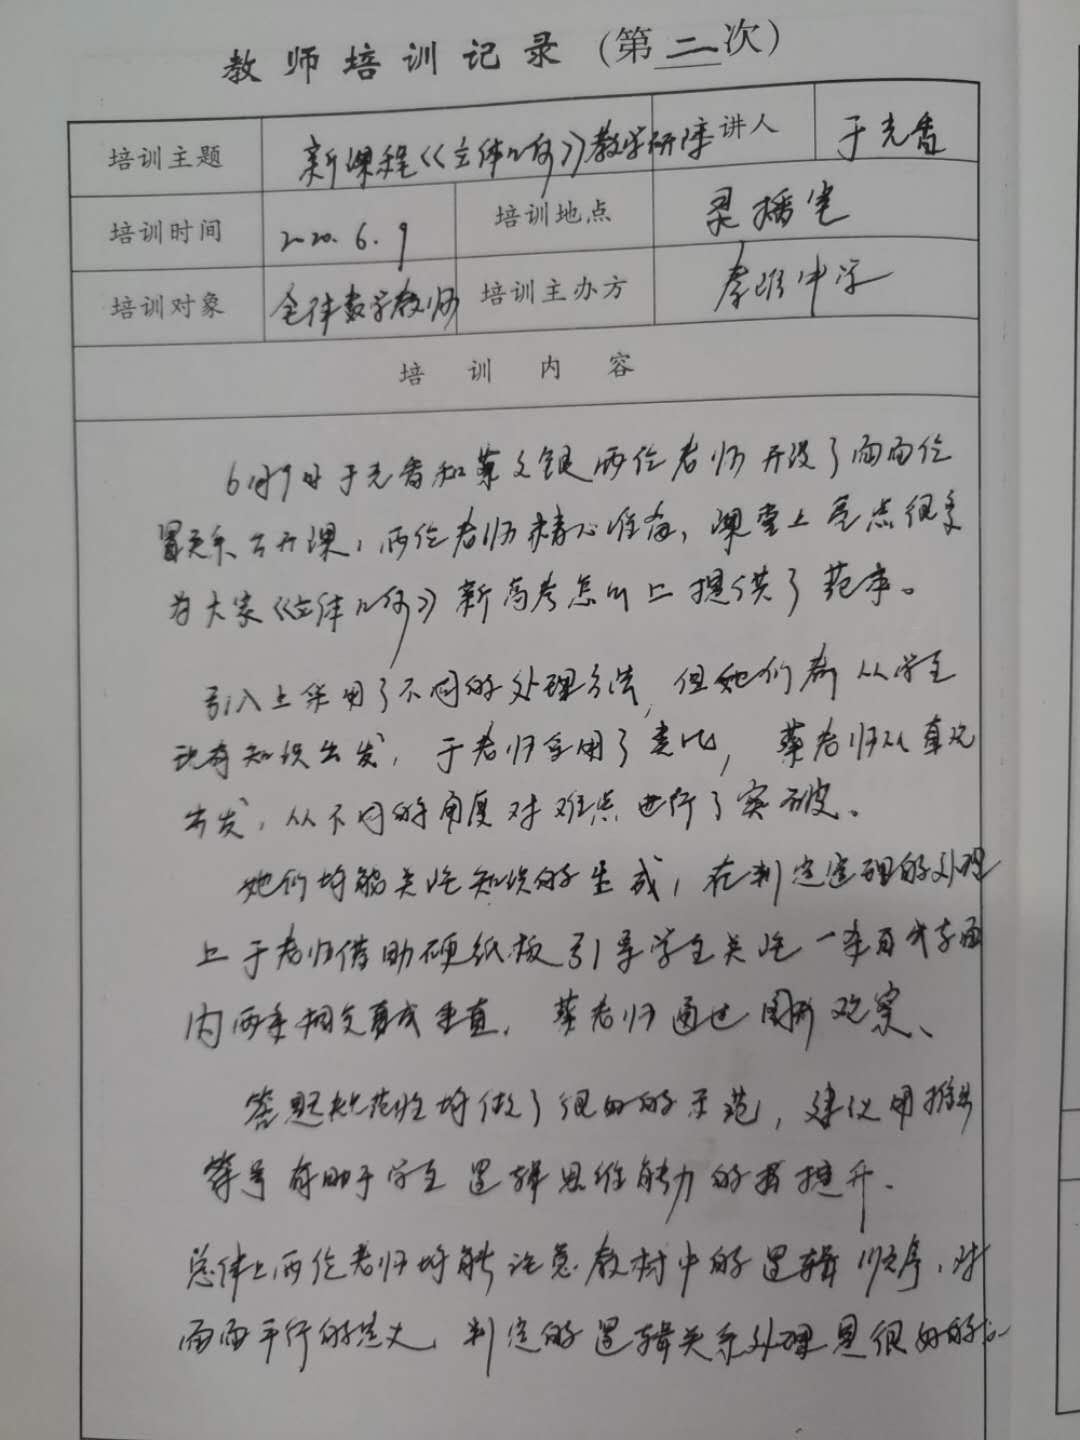 教师培训记录（第二次）
培训主题 新课程《立体几何》教学研 讲人 于光香
培训时间 2020.6.9 培训地点 录播室
培训对象 全体数学教师 培训主办方 中学
培训内容
6月9日于光香和 文银两位老师开设了面面位
置关系公开课，两位老师精心准备，课堂上亮点很多
为大家《立体几何》新高考怎么上提供了范本。
引入上采用了不同的处理方法，但她们都从学生
现有知识出发，于老师采用了类比，蔡老师从直观
出发，从不同的角度对难点进行了突破。
她们均能关注知识的生成，在判定定理的处理
上于老师借助硬纸板引导学生关注一条直线与面
内两条相交直线垂直，蔡老师通过图形观察、
答题规范性均做了很好的示范，建议用推出
符号有助于学生逻辑思维能力的提升。
总体上两位老师均能注意教材中的逻辑顺序，对
面面平行的定义，判定的逻辑关系处理是很好的